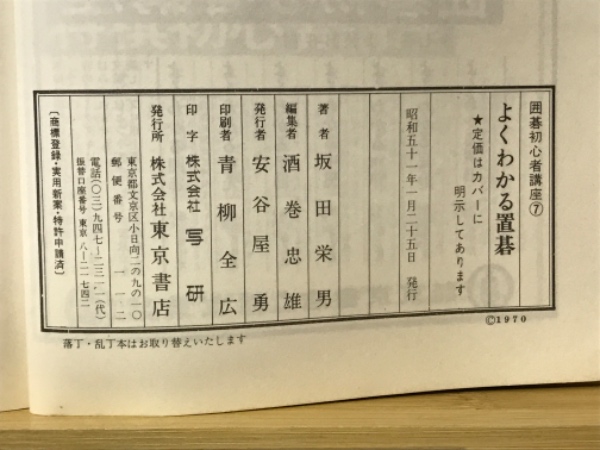 囲碁初心者講座⑦
よくわかる置碁
★定価はカバーに
明示してあります
昭和五十一年一月二十五日 発行
著者 坂田栄男
編集者 酒巻忠雄
発行者 安谷屋勇
印刷者 青柳全広
印字 株式会社 写研
発行所 株式会社 東京書店
東京都文京区小日向二の九の一〇
郵便番号 一一二
電話(〇三)九四七-二三一一(代)
振替口座番号 東京 八-二一七四二
〔商標登録・実用新案・特許申請済〕
©1970
落丁・乱丁本はお取り替えいたします